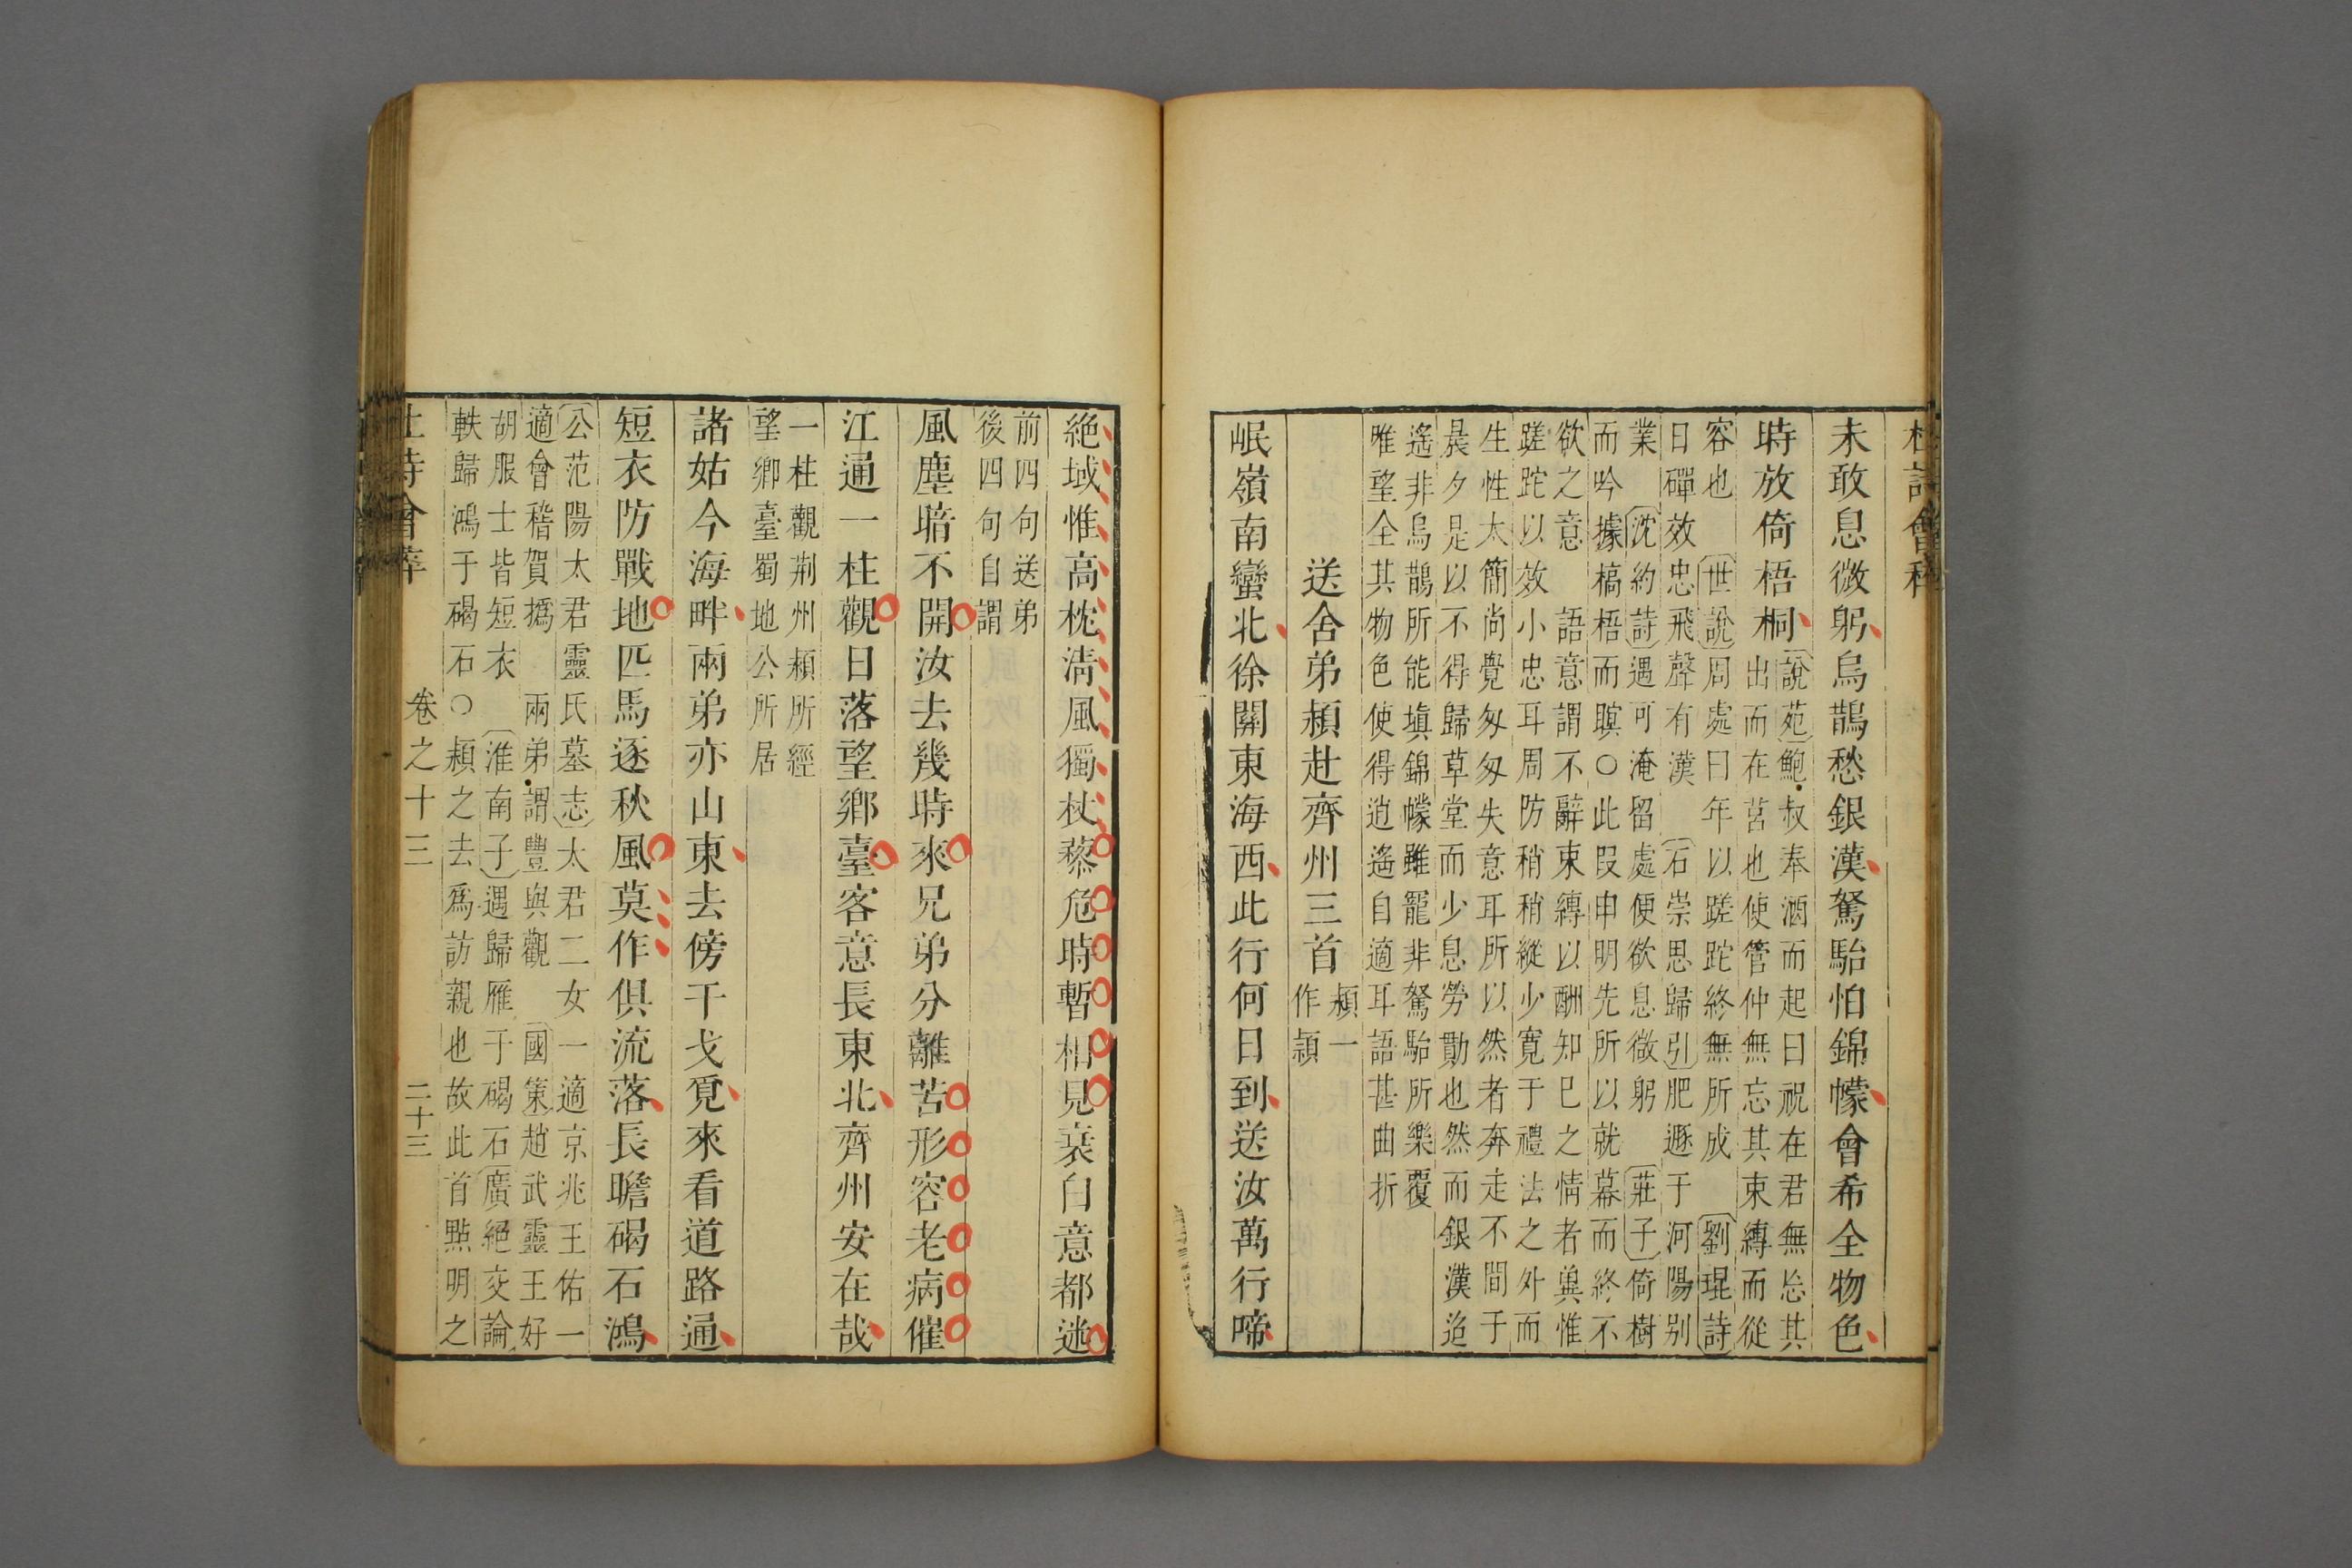 杜詩會稡
未敢息微躬烏鵲愁銀漢駑駘怕錦幪會希全物色
時放倚梧桐
說苑鮑叔奉酒而起曰祝在君無忘其
出而在莒也使管仲無忘其束縛而從
容也　世說周處曰年以蹉跎終無所成　劉琨詩
日磾效忠飛聲有漢　石崇思歸引肥遯于河陽別
業　沈約詩遇可淹留處便欲息微躬　莊子倚樹
而吟據槁梧而瞑○此段申明先所以就幕而終不
欲之意　語意謂不辭束縛以酬知已之情者與惟
蹉跎以效小忠耳周防稍稍縱少寬于禮法之外而
生性太簡尚覺匆匆失意耳所以然者奔走不間于
晨夕是以不得歸草堂而少息勞勩也然而銀漢迢
遙非烏鵲所能塡錦幪雖寵非駑駘所樂覆
唯望全其物色使得逍遙自適耳語甚曲折
送舍弟頻赴齊州三首
頻一
作潁
岷嶺南蠻北徐關東海西此行何日到送汝萬行啼
絕域惟高枕淸風獨杖藜危時暫相見衰白意都迷
前四句送弟
後四句自謂
風塵暗不開汝去幾時來兄弟分離苦形容老病催
江通一柱觀日落望鄕臺客意長東北齊州安在哉
一柱觀荆州頻所經
望鄉臺蜀地公所居
諸姑今海畔兩弟亦山東去傍干戈覓來看道路通
短衣防戰地匹馬逐秋風莫作俱流落長瞻碣石鴻
公范陽太君靈氏墓志太君二女一適京兆王佑一
適會稽賀撝　兩弟謂豐與觀　國策趙武靈王好
胡服士皆短衣　淮南子遇歸雁于碣石廣絕交論
軼歸鴻于碣石○頻之去爲訪親也故此首點明之
杜詩會稡　卷之十三　二十三